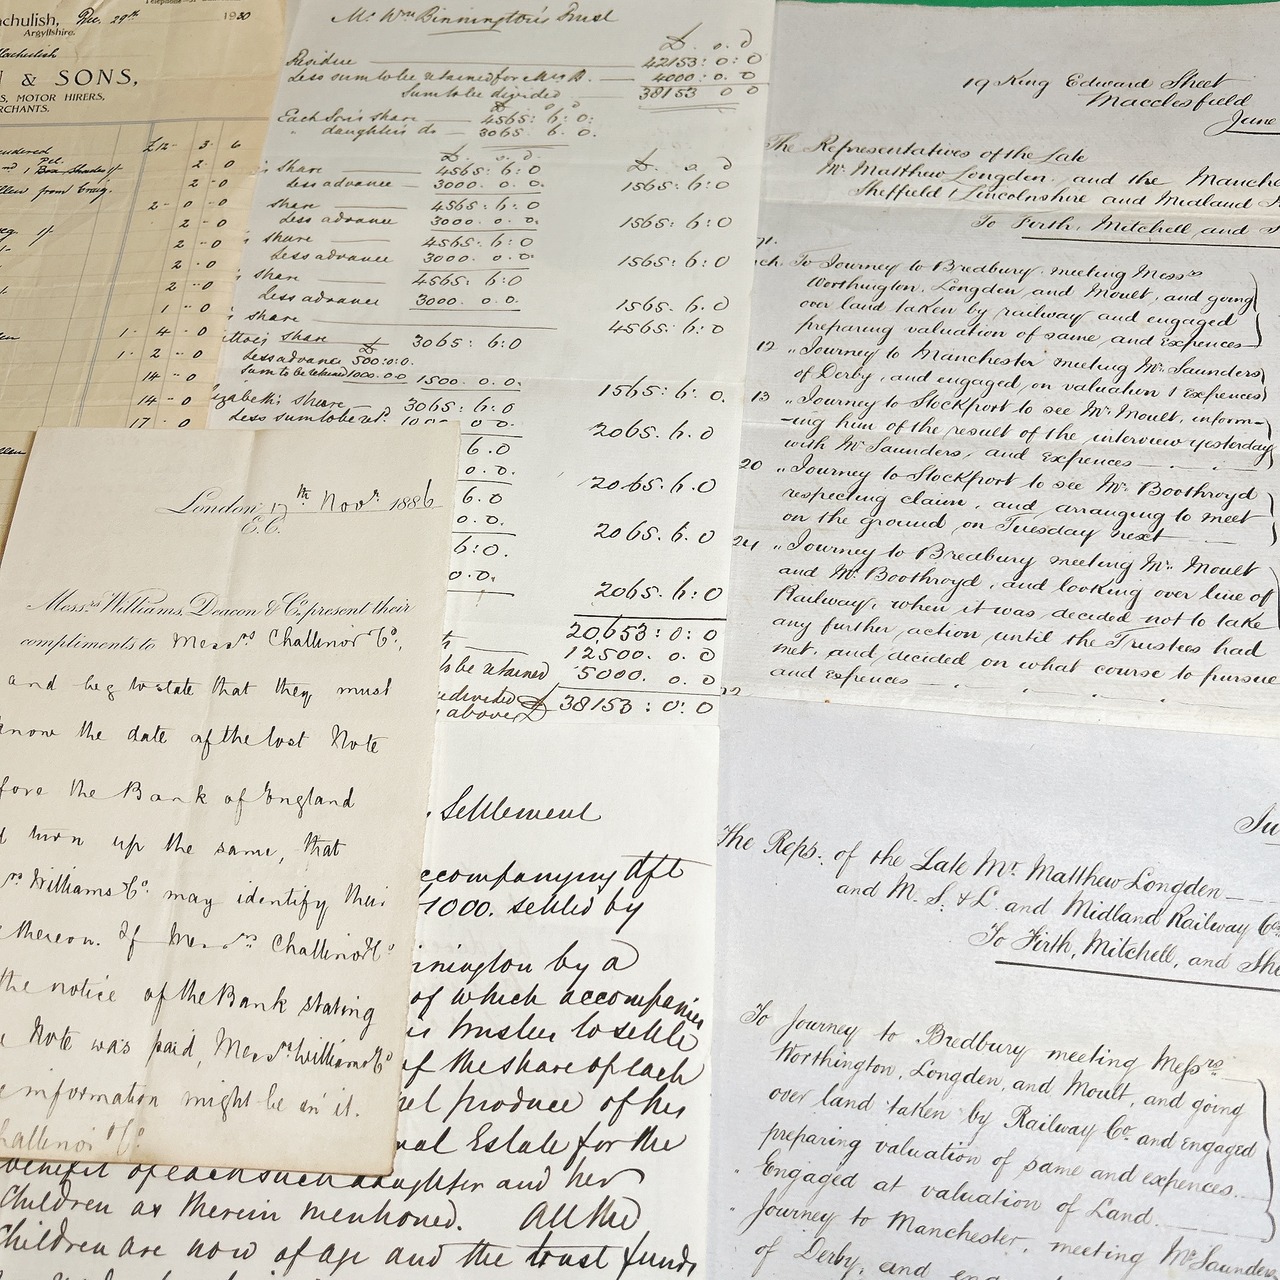 achulish, Dec. 29th 1930
Argyllshire.
& SONS,
S, MOTOR HIRERS,
RCHANTS.
£12 - 3 - 6
2 - 0
2 - 0
2 - 0 - 0
2 - 0
2 - 0
2 - 0
2 - 0
1 - 0
1 - 4 - 0
1 - 2 - 0
14 - 0
14 - 0
17 - 0
Mr. Wm Binnington's Trust
£. o. d
Residue 42153: 0: 0
Less sum to be retained for Mrs B. 4000: 0. 0
Sum to be divided 38153 0 0
Each Son's share 4565: 6: 0:
" daughter's do 3065 6. 0.
£. o. d. £. o. d
share 4565: 6: 0
Less advance 3000. 0. 0. 1565: 6: 0
share 4565. 6: 0
Less advance 3000. 0. 0. 1565: 6: 0
share 4565: 6: 0
Less advance 3000. 0. 0. 1565: 6: 0
share 4565: 6: 0
Less advance 3000. 0. 0. 1565: 6: 0
share 4565: 6: 0
share 3065: 6: 0
Less advance 500: 0: 0.
Sum to be retained 1000. 0. 0 1500. 0. 0. 1565: 6: 0.
lizabeth's share 3065: 6: 0
Less sum to be ret. 1000 0. 0. 2065. 6. 0
6. 0
0. 0. 2065. 6. 0
6. 0
0. 0. 2065. 6. 0
6: 0.
0. 0. 2065: 6: 0
20,653: 0: 0
12500. 0. 0
to be retained 5000. 0. 0
divided
above £ 38153: 0: 0
19 King Edward Street
Macclesfield
June
The Representatives of the Late
Mr. Matthew Longden, and the Manche
Sheffield & Lincolnshire and Midland
To Firth, Mitchell, and S
71.
ch. To Journey to Bredbury, meeting Messrs
Worthington, Longden, and Moult, and going
over land taken by railway and engaged
preparing valuation of same, and Expences
12 " Journey to Manchester meeting Mr. Saunders
of Derby, and engaged on valuation & Expences
13 " Journey to Stockport to see Mr. Moult, inform-
-ing him of the result of the interview yesterday
with Mr Saunders, and Expences
20 " Journey to Stockport to see Mr. Boothroyd
respecting claim, and arranging to meet
on the ground, on Tuesday next
24 " Journey to Bredbury meeting Mr. Moult
and Mr. Boothroyd, and looking over line of
Railway, when it was decided not to take
any further action until the Trustees had
met, and decided on what course to pursue
and Expences
London, 17th Novr. 1886
E.C.
Messrs Williams, Deacon & Co. present their
compliments to Messrs Challinor & Co.,
and beg to state that they must
know the date of the lost Note
fore the Bank of England
turn up the same, that
rs Williams & Co. may identify their
thereon. If Messrs Challinor & Co
the notice of the Bank stating
Note was paid, Messrs Williams & Co
information might be in it.
hallinor & Co.
Settlement
ccompanying dft
1000. settled by
nnington by a
of which accompanies
trustees to settle
of the share of each
produce of his
Estate for the
benefit of each such daughter and her
Children as therein mentioned. All the
Children are now of age and the trust funds
Ju
The Reps: of the Late Mr. Matthew Longden
and M. S. & L. and Midland Railway Cos
To Firth, Mitchell, and She
To Journey to Bredbury meeting Messrs
Worthington, Longden, and Moult, and going
over land taken by Railway Co. and engaged
preparing valuation of same and expences.
" Engaged at valuation of Land.
" Journey to Manchester, meeting Mr Saunders
of Derby, and eng